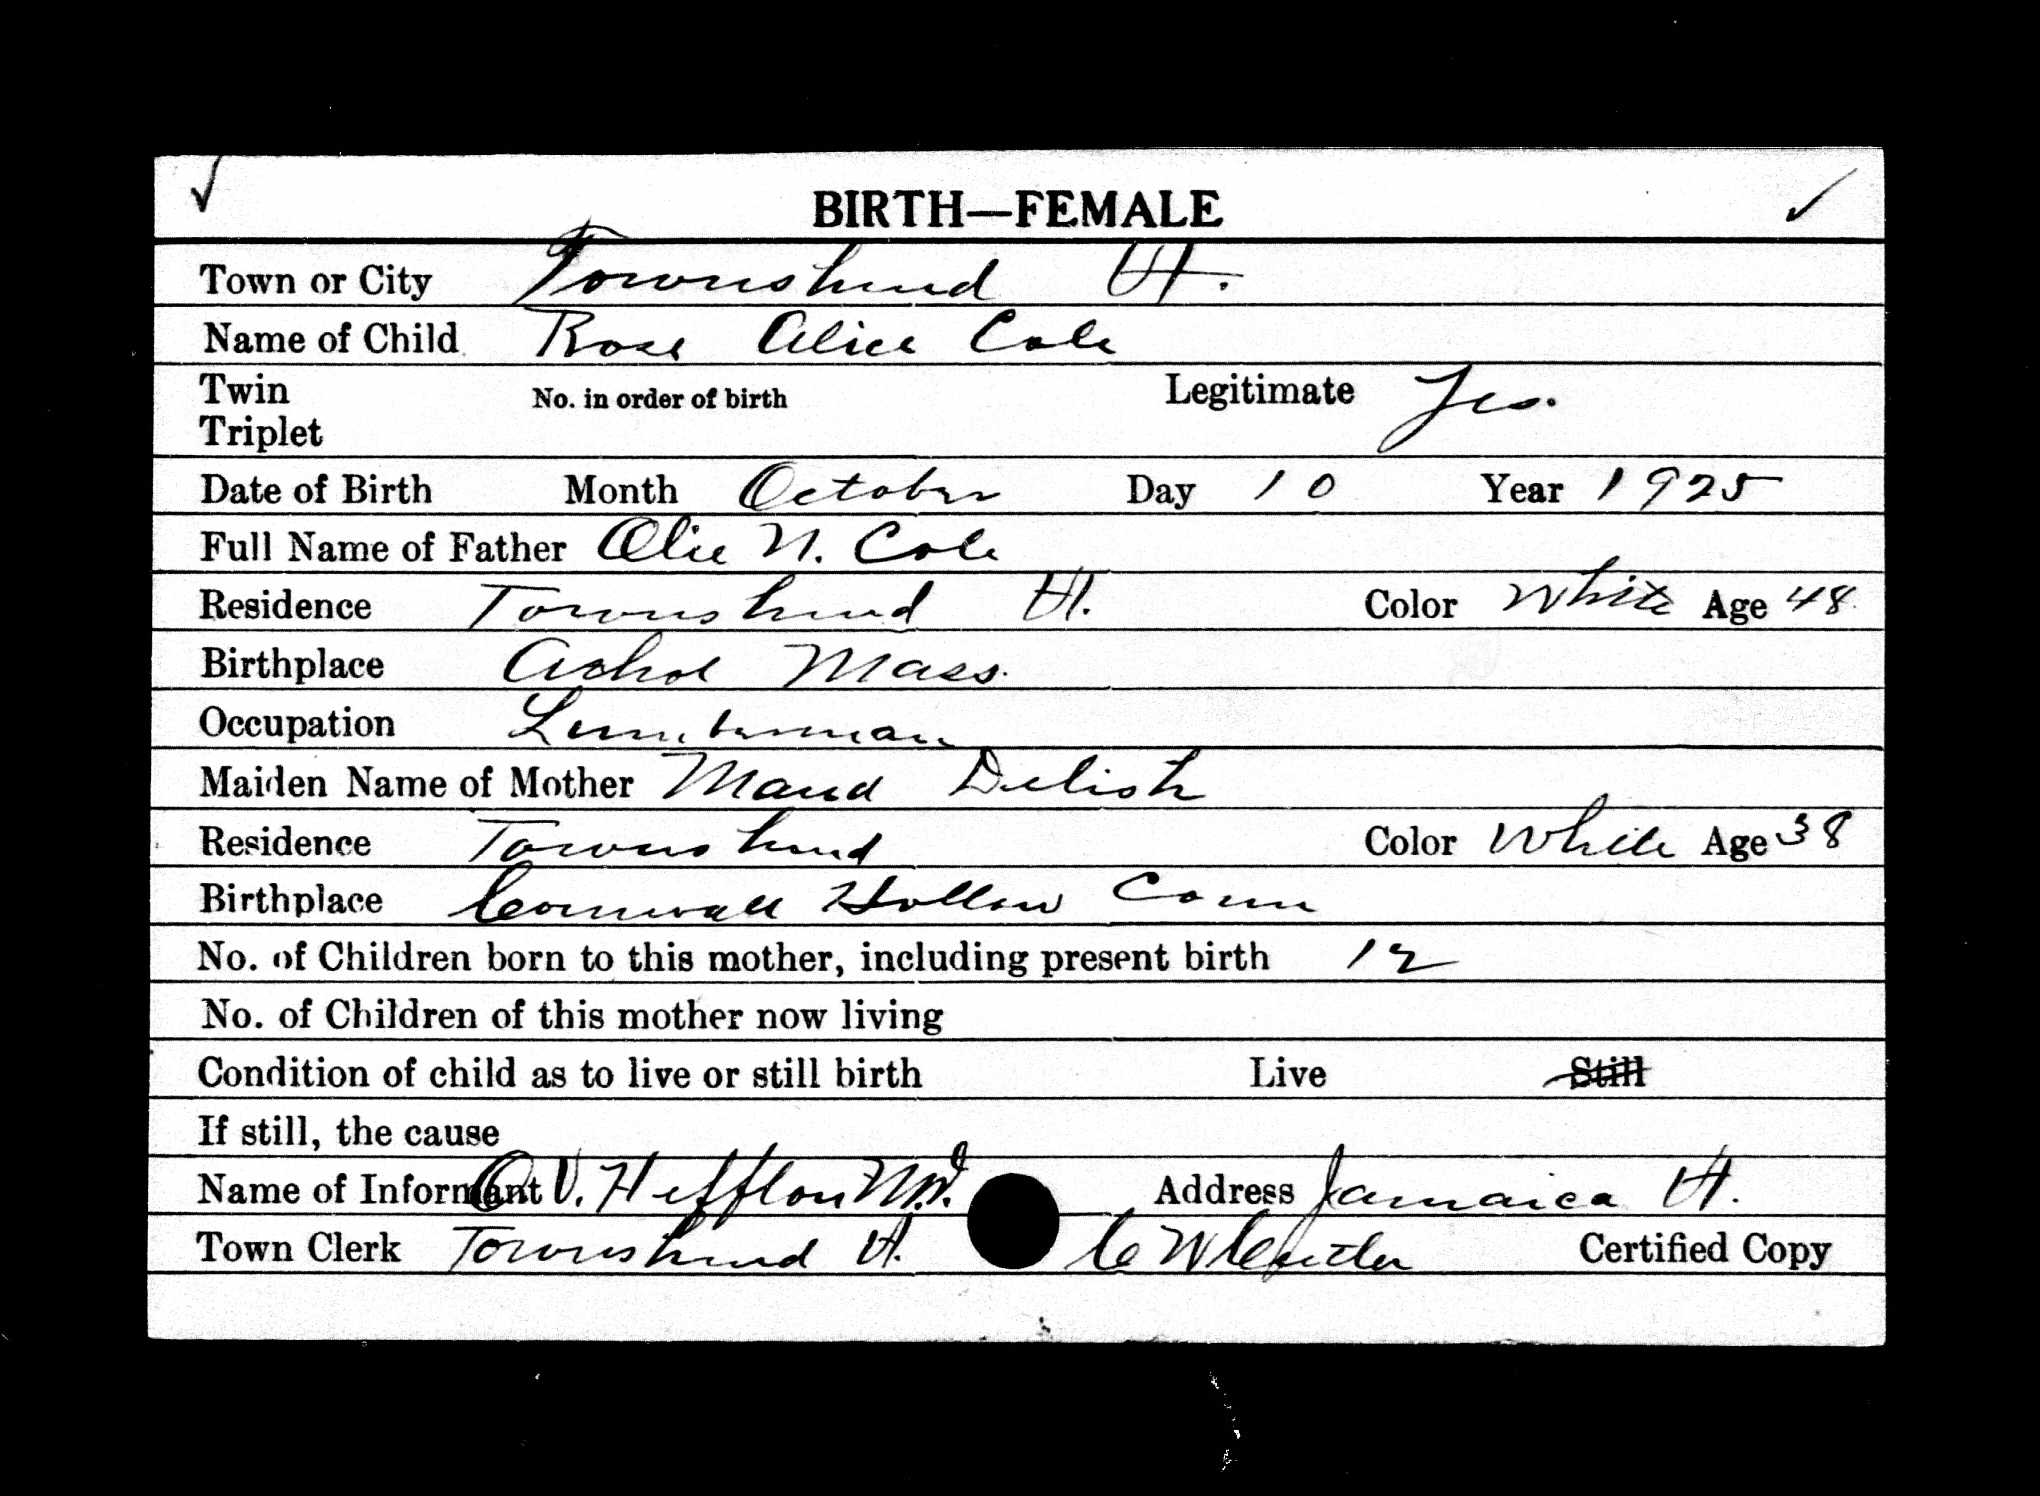 BIRTH—FEMALE
Town or City Townshend Vt.
Name of Child Rose Alice Cole
Twin No. in order of birth Legitimate Yes.
Triplet
Date of Birth Month October Day 10 Year 1925
Full Name of Father Olie N. Cole
Residence Townshend Vt. Color White Age 48
Birthplace Athol Mass.
Occupation Lumberman
Maiden Name of Mother Maud Delish
Residence Townshend Color White Age 38
Birthplace Cornwall Hollow Conn
No. of Children born to this mother, including present birth 12
No. of Children of this mother now living
Condition of child as to live or still birth Live Still
If still, the cause
Name of Informant O V. Hefflon M.D. Address Jamaica Vt.
Town Clerk Townshend Vt. Certified Copy